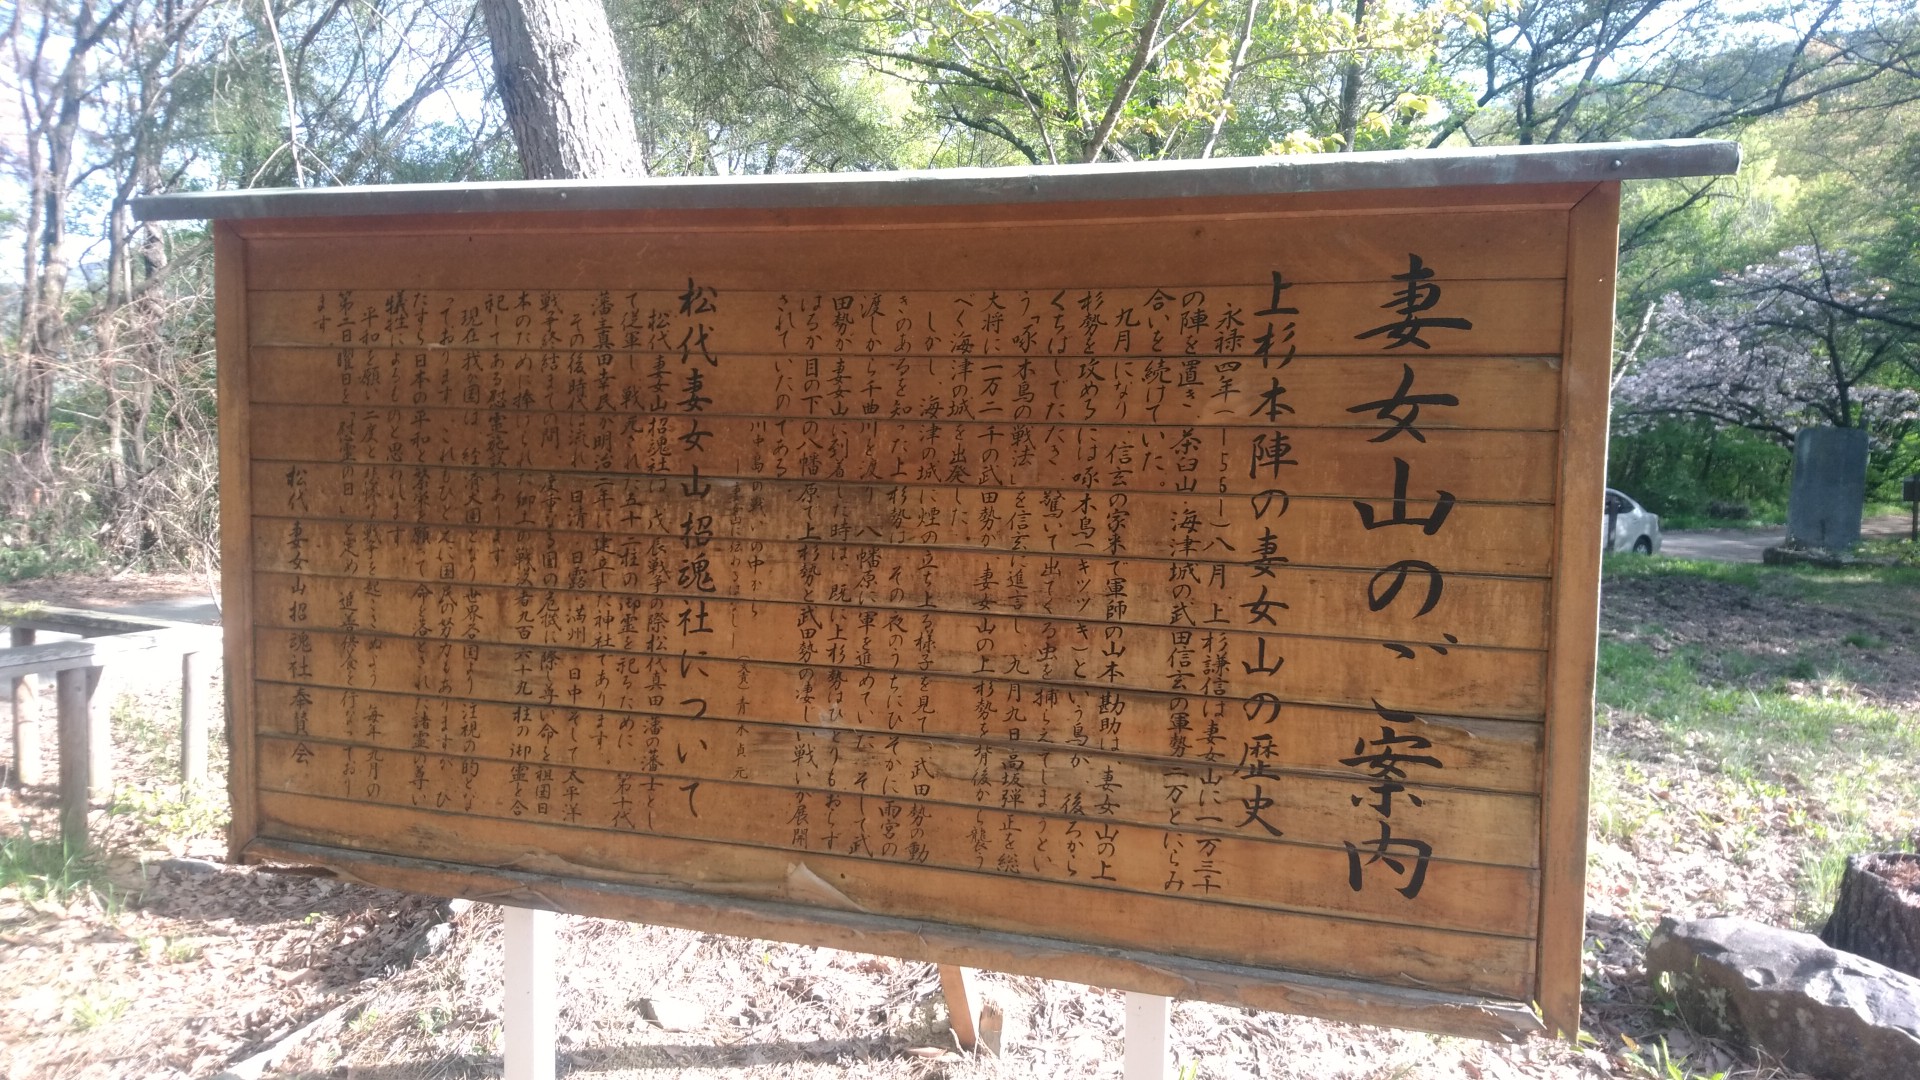 妻女山のご案内
上杉本陣の妻女山の歴史
永禄四年(一五六一)八月 上杉謙信は妻女山に一万三千
の陣を置き、茶臼山 海津城の武田信玄の軍勢二万とにらみ
合いを続けていた。
九月になり、信玄の家来で軍師の山本勘助は、妻女山の上
杉勢を攻めるには啄木鳥(キツツキ)という鳥が、後ろから
くちばしでたたき、驚いて出てくる虫を捕らえてしまうとい
う「啄木鳥の戦法」を信玄に進言し 九月九日高坂弾正を総
大将に一万二千の武田勢が、妻女山の上杉勢を背後から襲う
べく海津の城を出発した。
しかし、海津の城に煙の立ち上る様子を見て、武田勢の動
きのあるを知った上杉勢は、その夜のうちにひそかに雨宮の
渡しから千曲川を渡り、八幡原に軍を進めていた。そして武
田勢が妻女山に到着した時は、既に上杉勢はひとりもおらず
はるか目の下の八幡原で上杉勢と武田勢の凄しい戦いが展開
されていたのである。
川中島の戦いの中から
(文責)青木貞元
松代妻女山招魂社について
松代妻女山招魂社は、戊辰戦争の際松代真田藩の藩士とし
て従軍し、戦死された五十二柱の御霊を祀るために、第十代
藩主真田幸民が明治二年に建立した神社であります。
その後時代は流れ 日清 日露 満州 日中そして太平洋
戦争終結までの間 重大なる国の危機に際し尊い命を祖国日
本のために捧げられた郷土の戦没者九百六十九柱の御霊を合
祀してある慰霊殿であります。
現在我が国は、経済大国となり世界各国より注視の的とな
っております。これもひとえに国民の努力もありますが、ひ
たすら日本の平和と繁栄を願って命を落とされた諸霊の尊い
犠牲によるものと思われます。
平和を願い二度と悲惨な戦争を起こさぬよう 毎年九月の
第二日曜日を「慰霊の日」と定め、追悼法会を行なっており
ます。
松代妻女山招魂社奉賛会